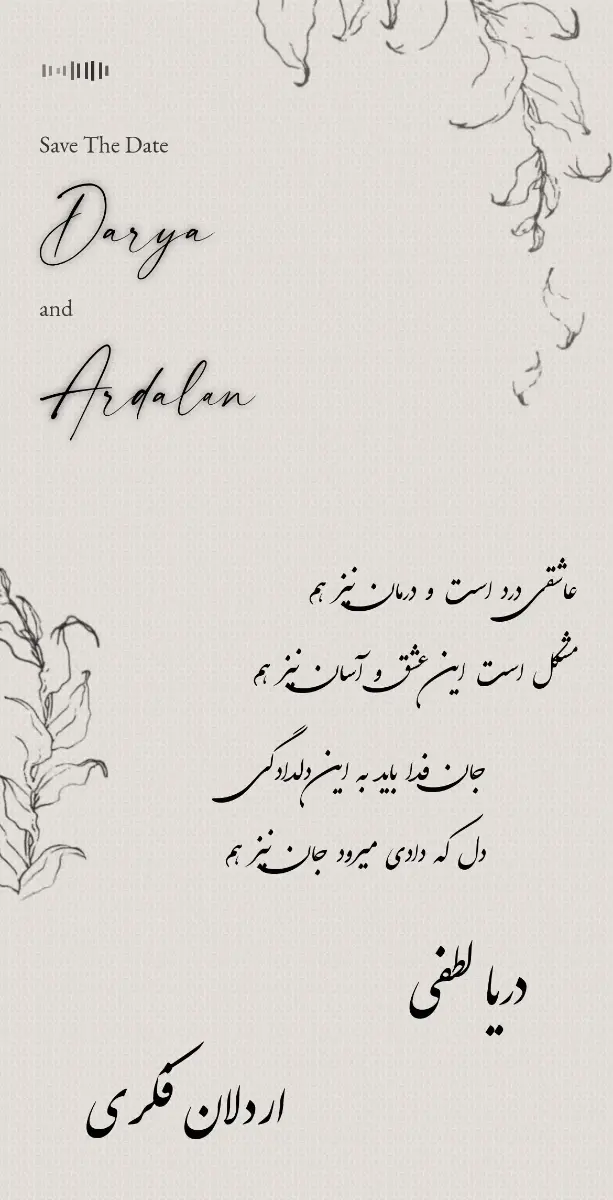 Save The Date
Darya
and
Ardalan
عاشقی درد است و درمان نیز هم
مشکل است این عشق و آسان نیز هم
جان فدا باید به این دلدادگی
دل که دادی میرود جان نیز هم
دریا لطفی
اردلان فکری